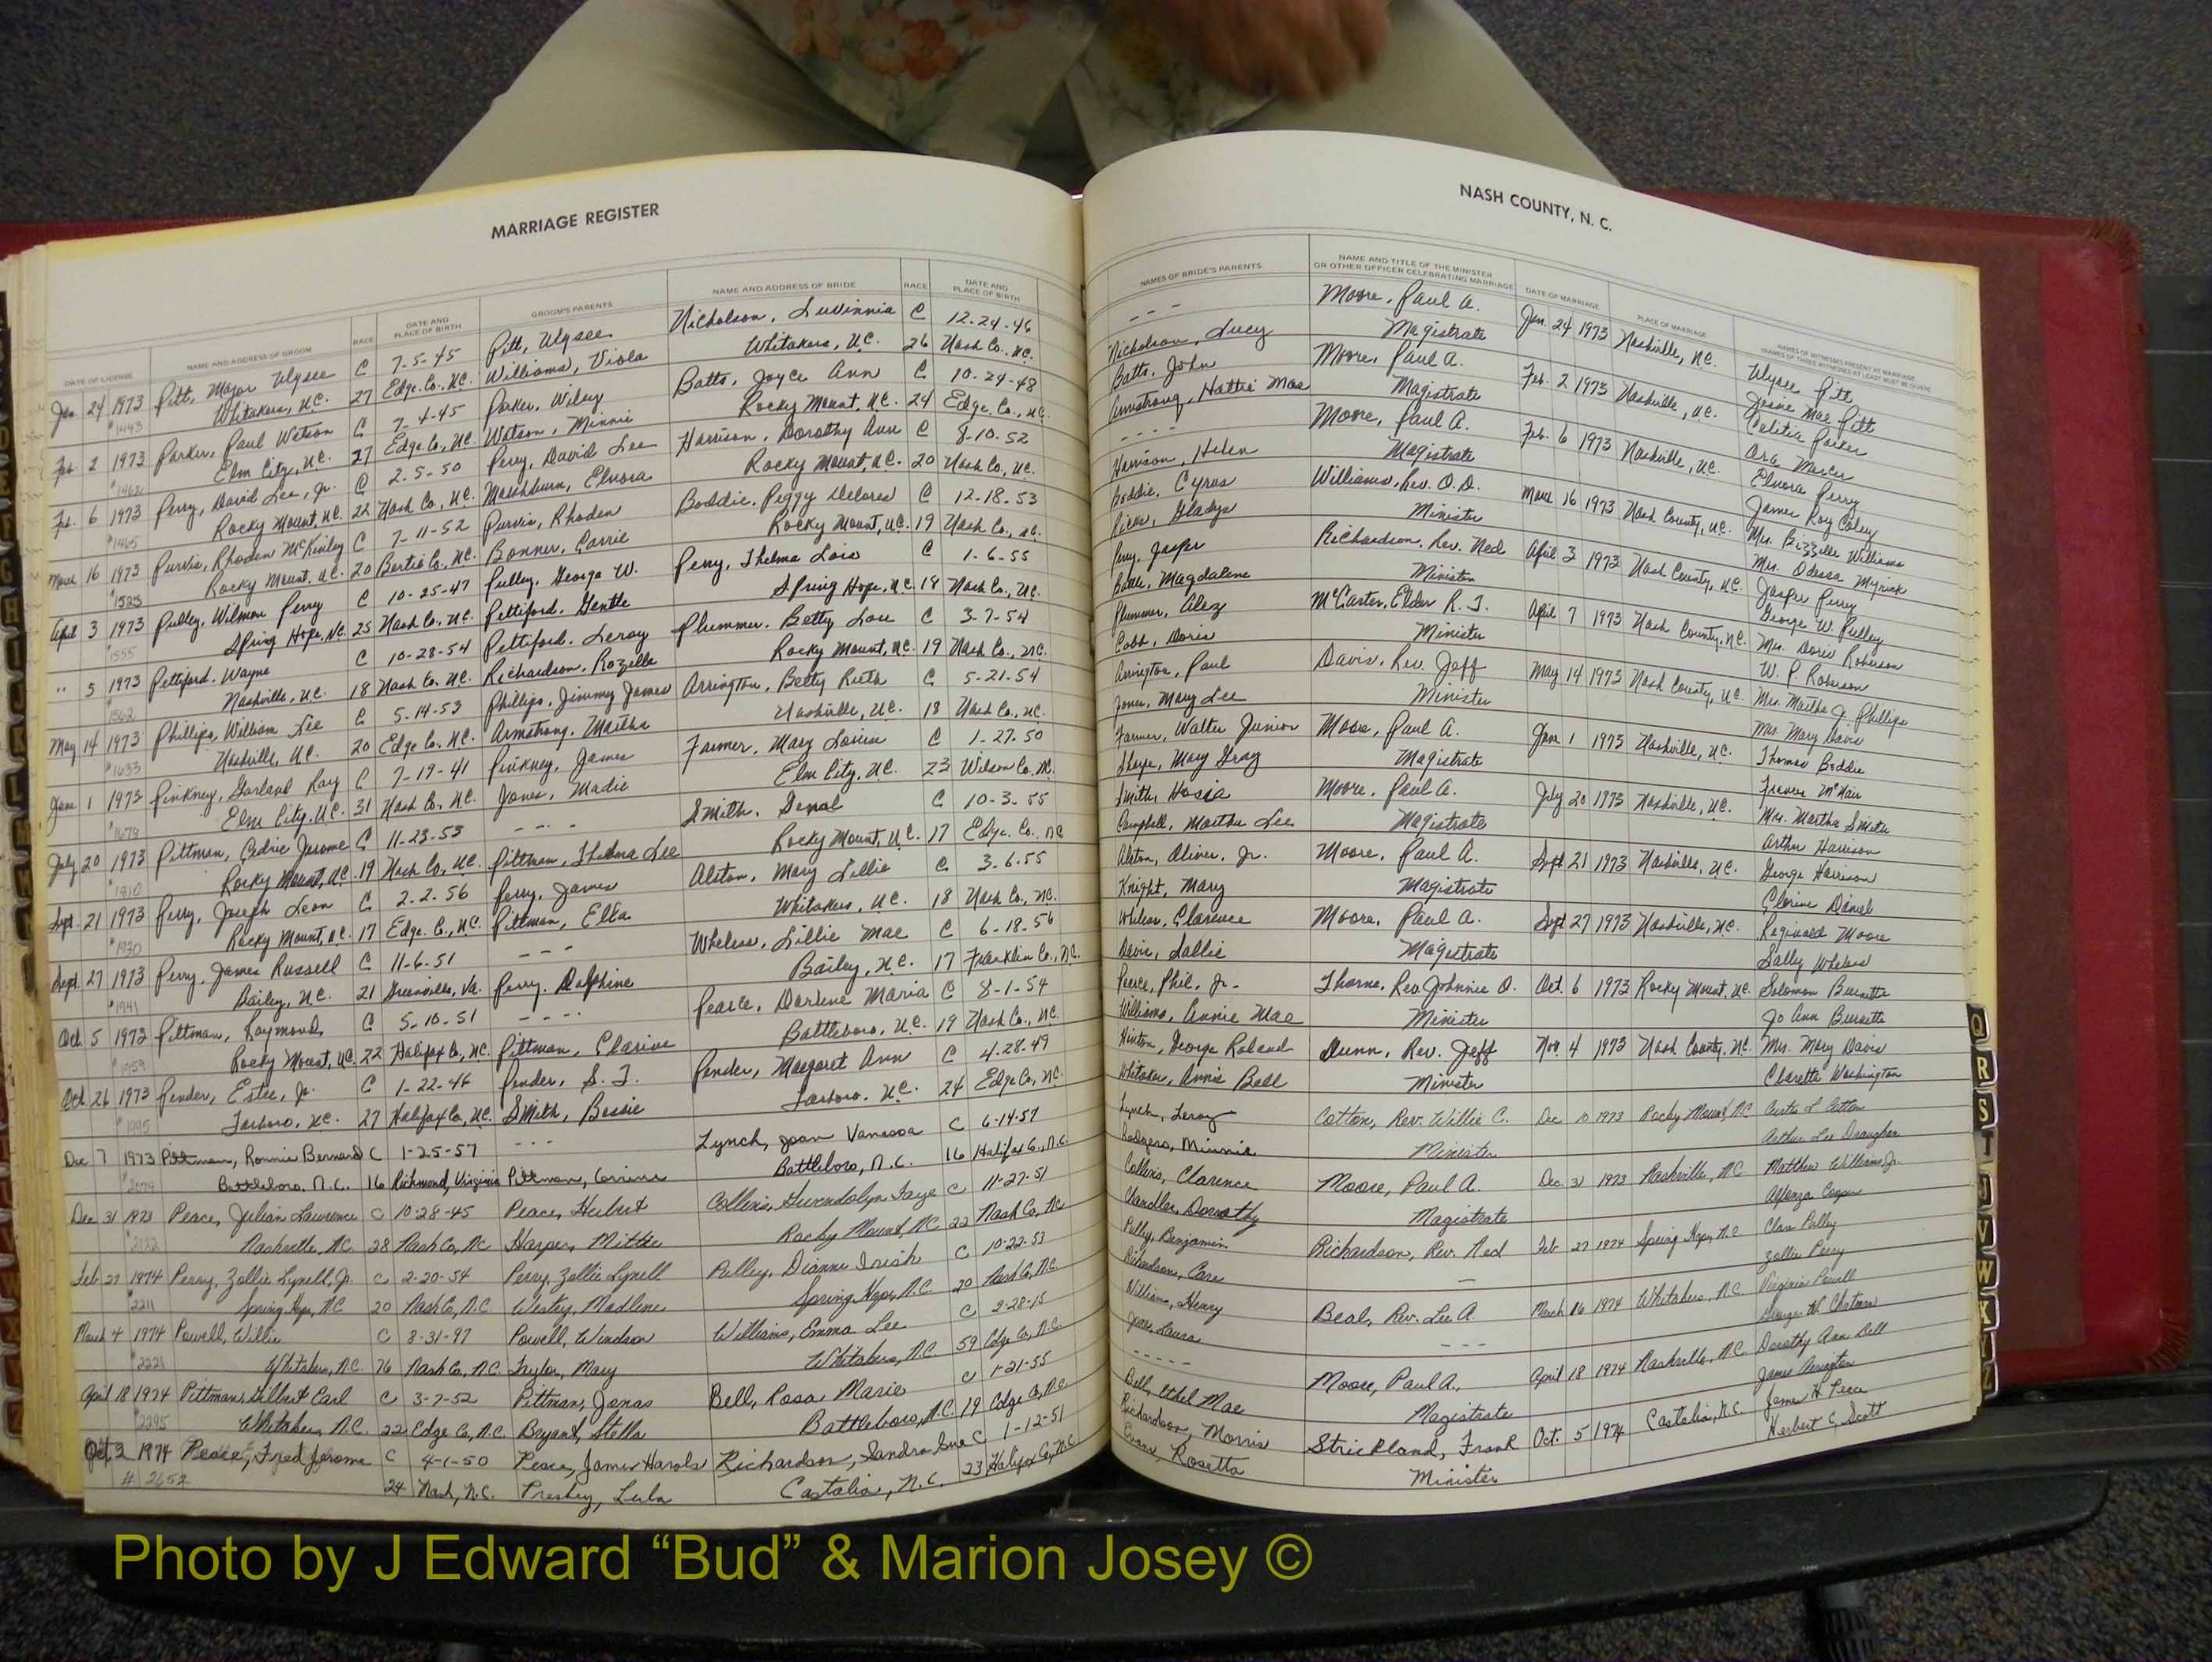 MARRIAGE REGISTER
DATE OF LICENSE NAME AND ADDRESS OF GROOM RACE DATE AND PLACE OF BIRTH GROOM'S PARENTS NAME AND ADDRESS OF BRIDE RACE DATE AND PLACE OF BIRTH
Jan. 24 1973 Pitt, Major Ulysee C 7-5-45 Pitt, Ulysee Nicholson, Luvinnia C 12-24-46
#1443 Whitakers, N.C. 27 Edge. Co., N.C. Williams, Viola Whitakers, N.C. 26 Nash Co., N.C.
Feb. 2 1973 Parker, Paul Watson C 7-4-45 Parker, Wiley Batts, Joyce Ann C 10-24-48
Elm City, N.C. 27 Edge. Co., N.C. Watson, Minnie Rocky Mount, N.C. 24 Edge. Co., N.C.
Feb. 6 1973 Perry, David Lee, Jr. C 2-5-50 Perry, David Lee Harrison, Dorothy Ann C 8-10-52
#1465 Rocky Mount, N.C. 22 Nash Co., N.C. Mashburn, Elnora Rocky Mount, N.C. 20 Nash Co., N.C.
March 16 1973 Purvis, Rhoden McKinley C 7-11-52 Purvis, Rhoden Boddie, Peggy Delores C 12-18-53
#1525 Rocky Mount, N.C. 20 Bertie Co., N.C. Bonner, Carrie Rocky Mount, N.C. 19 Nash Co., N.C.
April 3 1973 Pulley, Wilmon Perry C 10-25-47 Pulley, George W. Perry, Thelma Lois C 1-6-55
#1555 Spring Hope, N.C. 25 Nash Co., N.C. Pettiford, Gentle Spring Hope, N.C. 18 Nash Co., N.C.
" 5 1973 Pettiford, Wayne C 10-28-54 Pettiford, Leroy Plummer, Betty Lou C 3-7-54
#1562 Nashville, N.C. 18 Nash Co. N.C. Richardson, Rozella Rocky Mount, N.C. 19 Nash Co., N.C.
May 14 1973 Phillips, William Lee C 5-14-53 Phillips, Jimmy James Arrington, Betty Ruth C 5-21-54
#1633 Nashville, N.C. 20 Edge Co. N.C. Armstrong, Martha Nashville, N.C. 18 Nash Co., N.C.
June 1 1973 Pinkney, Garland Ray C 7-19-41 Pinkney, James Farmer, Mary Louise C 1-27-50
#1679 Elm City, N.C. 31 Nash Co., N.C. Jones, Madie Elm City, N.C. 23 Wilson Co. N.C.
July 20 1973 Pittman, Cedric Jerome C 11-23-53 - - - - Smith, Denal C 10-3-55
#1810 Rocky Mount, N.C. 19 Nash Co., N.C. Pittman, Thelma Lee Rocky Mount, N.C. 17 Edge. Co. N.C.
Sept. 21 1973 Perry, Joseph Leon C 2-2-56 Perry, James Alston, Mary Lillie C 3-6-55
#1930 Rocky Mount, N.C. 17 Edge. C., N.C. Pittman, Ella Whitakers, N.C. 18 Nash Co., N.C.
Sept. 27 1973 Perry, James Russell C 11-6-51 - - - Wheless, Lillie Mae C 6-18-56
#1941 Bailey, N.C. 21 Greenville, Va. Perry, Delphine Bailey, N.C. 17 Franklin Co., N.C.
Oct. 5 1973 Pittman, Raymond C 5-10-51 - - - - Pearce, Darlene Maria C 8-1-54
#1959 Rocky Mount, N.C. 22 Halifax Co, N.C. Pittman, Clarine Battleboro, N.C. 19 Nash Co., N.C.
Oct. 26 1973 Pender, Estee, Jr. C 1-22-46 Pender, S. T. Pender, Margaret Ann C 4-28-49
#1995 Tarboro, N.C. 27 Halifax Co., N.C. Smith, Bessie Tarboro, N.C. 24 Edge Co., N.C.
Dec 7 1973 Pittman, Ronnie Bernard C 1-25-57 - - - Lynch, Joan Vanessa C 6-14-57
Battleboro, N.C. 16 Richmond, Virginia Pittman, Corine Battleboro, N.C. 16 Halifax Co., N.C.
Dec 31 1973 Peace, Julian Lawrence C 10-28-45 Peace, Hubert Collins, Gwendolyn Faye C 11-27-51
#2122 Nashville, NC 28 Nash Co, NC Harper, Mittie Rocky Mount, NC 22 Nash Co, NC
Feb 27 1974 Perry, Zollie Lynell, Jr. C 2-20-54 Perry, Zollie Lynell Pulley, Dianne Irish C 10-22-53
#2211 Spring Hope, NC 20 Nash Co, N.C Westey, Madlene Spring Hope, N.C. 20 Nash Co, NC
March 4 1974 Powell, Willie C 8-31-97 Powell, Windson Williams, Emma Lee C 2-28-15
#2221 Whitakers, N.C 76 Nash Co, N.C. Taylor, Mary Whitakers, N.C. 59 Edge Co, N.C.
April 18 1974 Pittman, Wilbert Earl C 3-7-52 Pittman, Jonas Bell, Rosa Marie C 1-21-55
#2295 Whitakers, N.C. 22 Edge Co, N.C. Bryant, Stella Battleboro, N.C. 19 Edge Co, N.C.
Oct. 3 1974 Peace, Fred Jerome C 4-1-50 Peace, James Harold Richardson, Sandra Sue C 1-12-51
# 2652 24 Nash, N.C. Presley, Lula Castalia, N.C. 23 Halifax Co, N.C.
NASH COUNTY, N. C.
NAMES OF BRIDE'S PARENTS NAME AND TITLE OF THE MINISTER OR OTHER OFFICER CELEBRATING MARRIAGE DATE OF MARRIAGE PLACE OF MARRIAGE NAMES OF WITNESSES PRESENT AT MARRIAGE
- - Moore, Paul A. Jan. 24 1973 Nashville, N.C. Ulysee Pitt
Nicholson, Lucy Magistrate Jessie Mae Pitt
Batts, John Moore, Paul A. Feb. 2 1973 Nashville, N.C. Calitia Parker
Armstrong, Hattie Mae Magistrate Ora Mercer
- - - - Moore, Paul A. Feb. 6 1973 Nashville, N.C. Elnora Perry
Harrison, Helen Magistrate James Roy Coley
Boddie, Cyrus Williams, Rev. O.D. March 16 1973 Nash County, N.C. Mrs. Bizzelle Williams
Ricks, Gladys Minister Mrs. Odessa Myrick
Perry, Jasper Richardson, Rev. Ned April 3 1973 Nash County, N.C. Jasper Perry
Battle, Magdalene Minister George W. Pulley
Plummer, Alex McCarter, Elder R. J. April 7 1973 Nash County, N.C. Mrs. Doris Roberson
Cobb, Doris Minister W. P. Roberson
Arrington, Paul Davis, Rev. Jeff May 14 1973 Nash County, N.C. Mrs. Martha J. Phillips
Jones, Mary Lee Minister Mrs. Mary Davis
Farmer, Walter Junior Moore, Paul A. June 1 1973 Nashville, N.C. Thomas Boddie
Sharpe, Mary Gray Magistrate McNair
Smith, Hosia Moore, Paul A. July 20 1973 Nashville, N.C. Mrs. Martha Smith
Campbell, Martha Lee Magistrate Arthur Harrison
Alston, Oliver, Jr. Moore, Paul A. Sept. 21 1973 Nashville, N.C. George Harrison
Knight, Mary Magistrate Clorine Daniel
Wheless, Clarence Moore, Paul A. Sept 27 1973 Nashville, N.C. Reginald Moore
Davis, Sallie Magistrate Sally Wheless
Pearce, Phil, Jr. Thorne, Rev. Johnnie O. Oct. 6 1973 Rocky Mount, N.C. Solomon Burnette
Williams, Annie Mae Minister Jo Ann Burnette
Hinton, George Roland Dunn, Rev. Jeff Nov. 4 1973 Nash County, N.C. Mrs. Mary Davis
Whitaker, Annie Bell Minister Claretta Washington
Lynch, Leroy Cotton, Rev. Willie C. Dec 10 1973 Rocky Mount, N.C Curtis L Cotton
Rodgers, Minnie Minister Arthur Lee Draughan
Collins, Clarence Moore, Paul A. Dec. 31 1973 Nashville, N.C Matthew Williams Jr.
Chandler, Dorothy Magistrate Alfonza Cooper
Pulley, Benjamin Richardson, Rev. Ned Feb 27 1974 Spring Hope, N.C Clara Pulley
Richardson, Cora — Zollie Perry
Williams, Henry Beal, Rev. Lee A. March 16 1974 Whitakers, N.C Virginia Powell
Laura - - - George W. Chatman
- - - - - Moore, Paul A. April 18 1974 Nashville, N.C. Dorothy Ann Bell
Bell, Ethel Mae Magistrate James Arrington
Richardson, Morris Strickland, Frank Oct. 5 1974 Castalia, N.C. James H. Peace
Evans, Rosetta Minister Herbert C. Scott
Q
R
S
T
J
V
W
K
Y
Z
Photo by J Edward “Bud” & Marion Josey ©